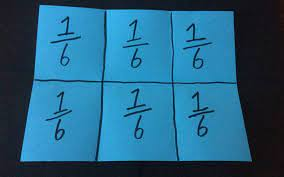 1/6 1/6 1/6
1/6 1/6 1/6